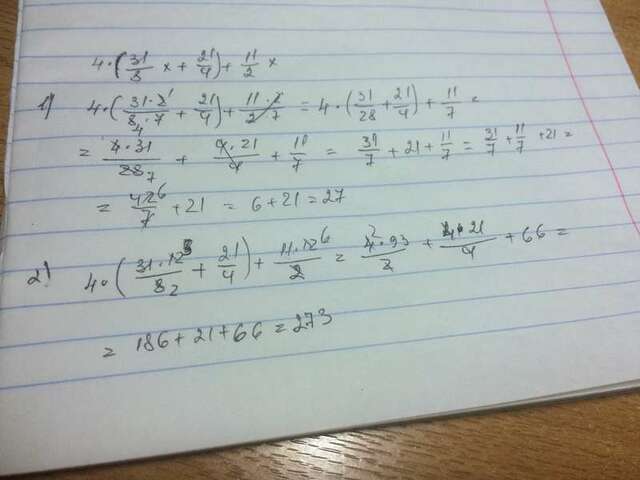 4·(31/8 x + 21/4) + 11/2 x
1) 4·(31·2¹/8₄·7 + 21/4) + 11·2/2·7 = 4·(31/28 + 21/4) + 11/7 =
= 4·31/28₇ + 4·21/4 + 11/7 = 31/7 + 21 + 11/7 = 31/7 + 11/7 + 21 =
= 42⁶/7 + 21 = 6 + 21 = 27
2) 4·(31·12³/8₂ + 21/4) + 11·12⁶/2 = ²4·93/2 + 4·21/4 + 66 =
= 186 + 21 + 66 = 273